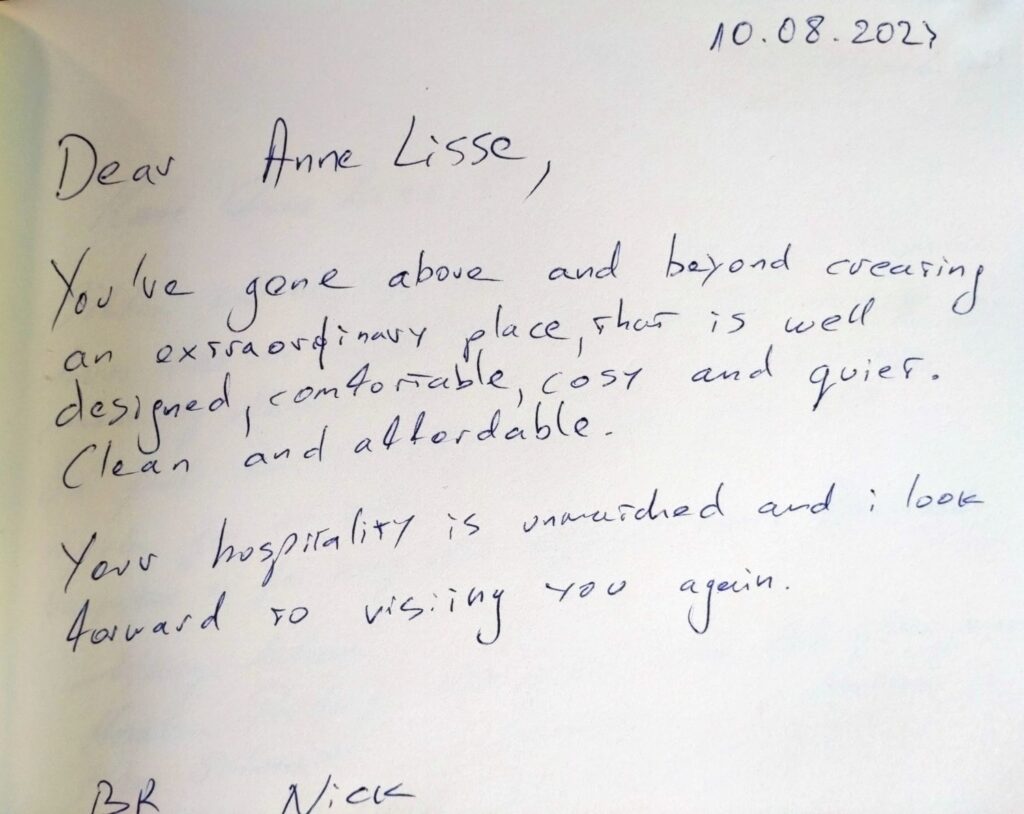 10.08.2023
Dear Anne Lisse,
You've gone above and beyond creating
an extraordinary place, that is well
designed, comfortable, cosy and quiet.
Clean and affordable.
Your hospitality is unmatched and i look
forward to visiing you again.
BR Nick